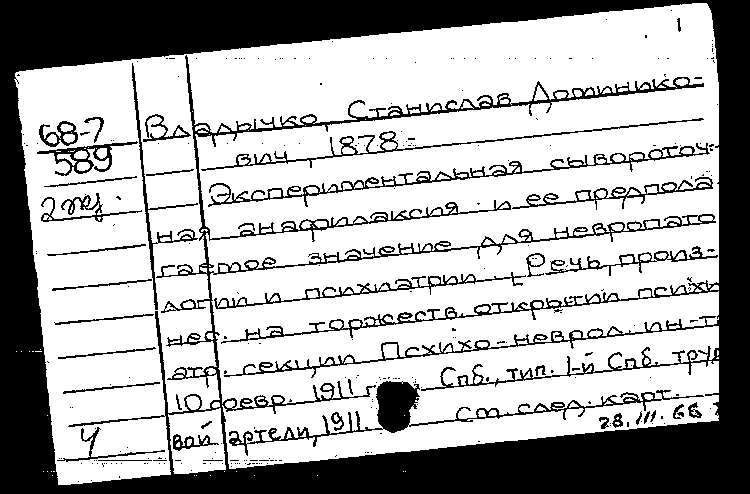 1
68-7
589
2 экз.
Владычко, Станислав Доминико-
вич, 1878-
Экспериментальная сывороточ-
ная анафилаксия и ее предпола
гаемое значение для невропато
логии и психиатрии. [Речь, произ-
нес. на торжеств. открытии психи
атр. секции Психо-неврол. ин-т
10 февр. 1911 г. Спб., тип. 1-й Спб. труд
вой артели, 1911. См. след. карт.
Ч
28.III.68